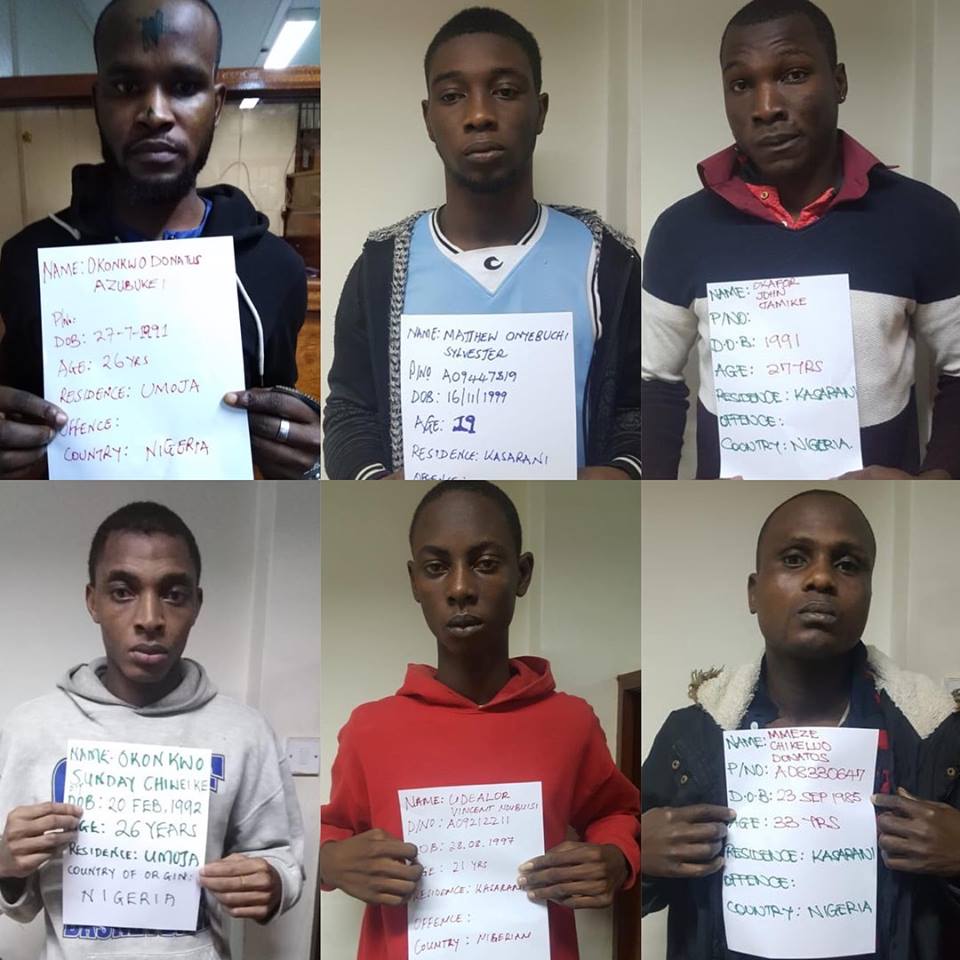 NAME: OKONKWO DONATUS
AZUBUKEI
P/No:
DOB: 27-7-1991
AGE: 26 YRS
RESIDENCE: UMOJA
OFFENCE:
COUNTRY: NIGERIA
NAME: MATTHEW ONYEBUCHI
SYLVESTER
P/NO A09447819
DOB: 16/11/1999
AGE: 19
RESIDENCE: KASARANI
OFFENCE:
NAME: OKAFOR
JOHN
JAMIKE
P/NO:
D.O.B: 1991
AGE: 27YRS
RESIDENCE: KASARANI
OFFENCE:
COUNTRY: NIGERIA.
NAME: OKONKWO
SUNDAY CHIWEIKE
DOB: 20 FEB. 1992
AGE: 26 YEARS
RESIDENCE: UMOJA
COUNTRY OF ORGIN:
NIGERIA
NAME: UDEALOR
VINCENT NDUBUISI
P/NO: A09212211
DOB: 28.08.1997
AGE: 21 YRS
RESIDENCE: KASARANI
OFFENCE:
COUNTRY: NIGERIAN
NAME: MMEZE
CHIKELUO
DONATOS
P/NO: A08280647
D.O.B: 23 SEP 1985
AGE: 33 YRS
RESIDENCE: KASARANI
OFFENCE:
COUNTRY: NIGERIA